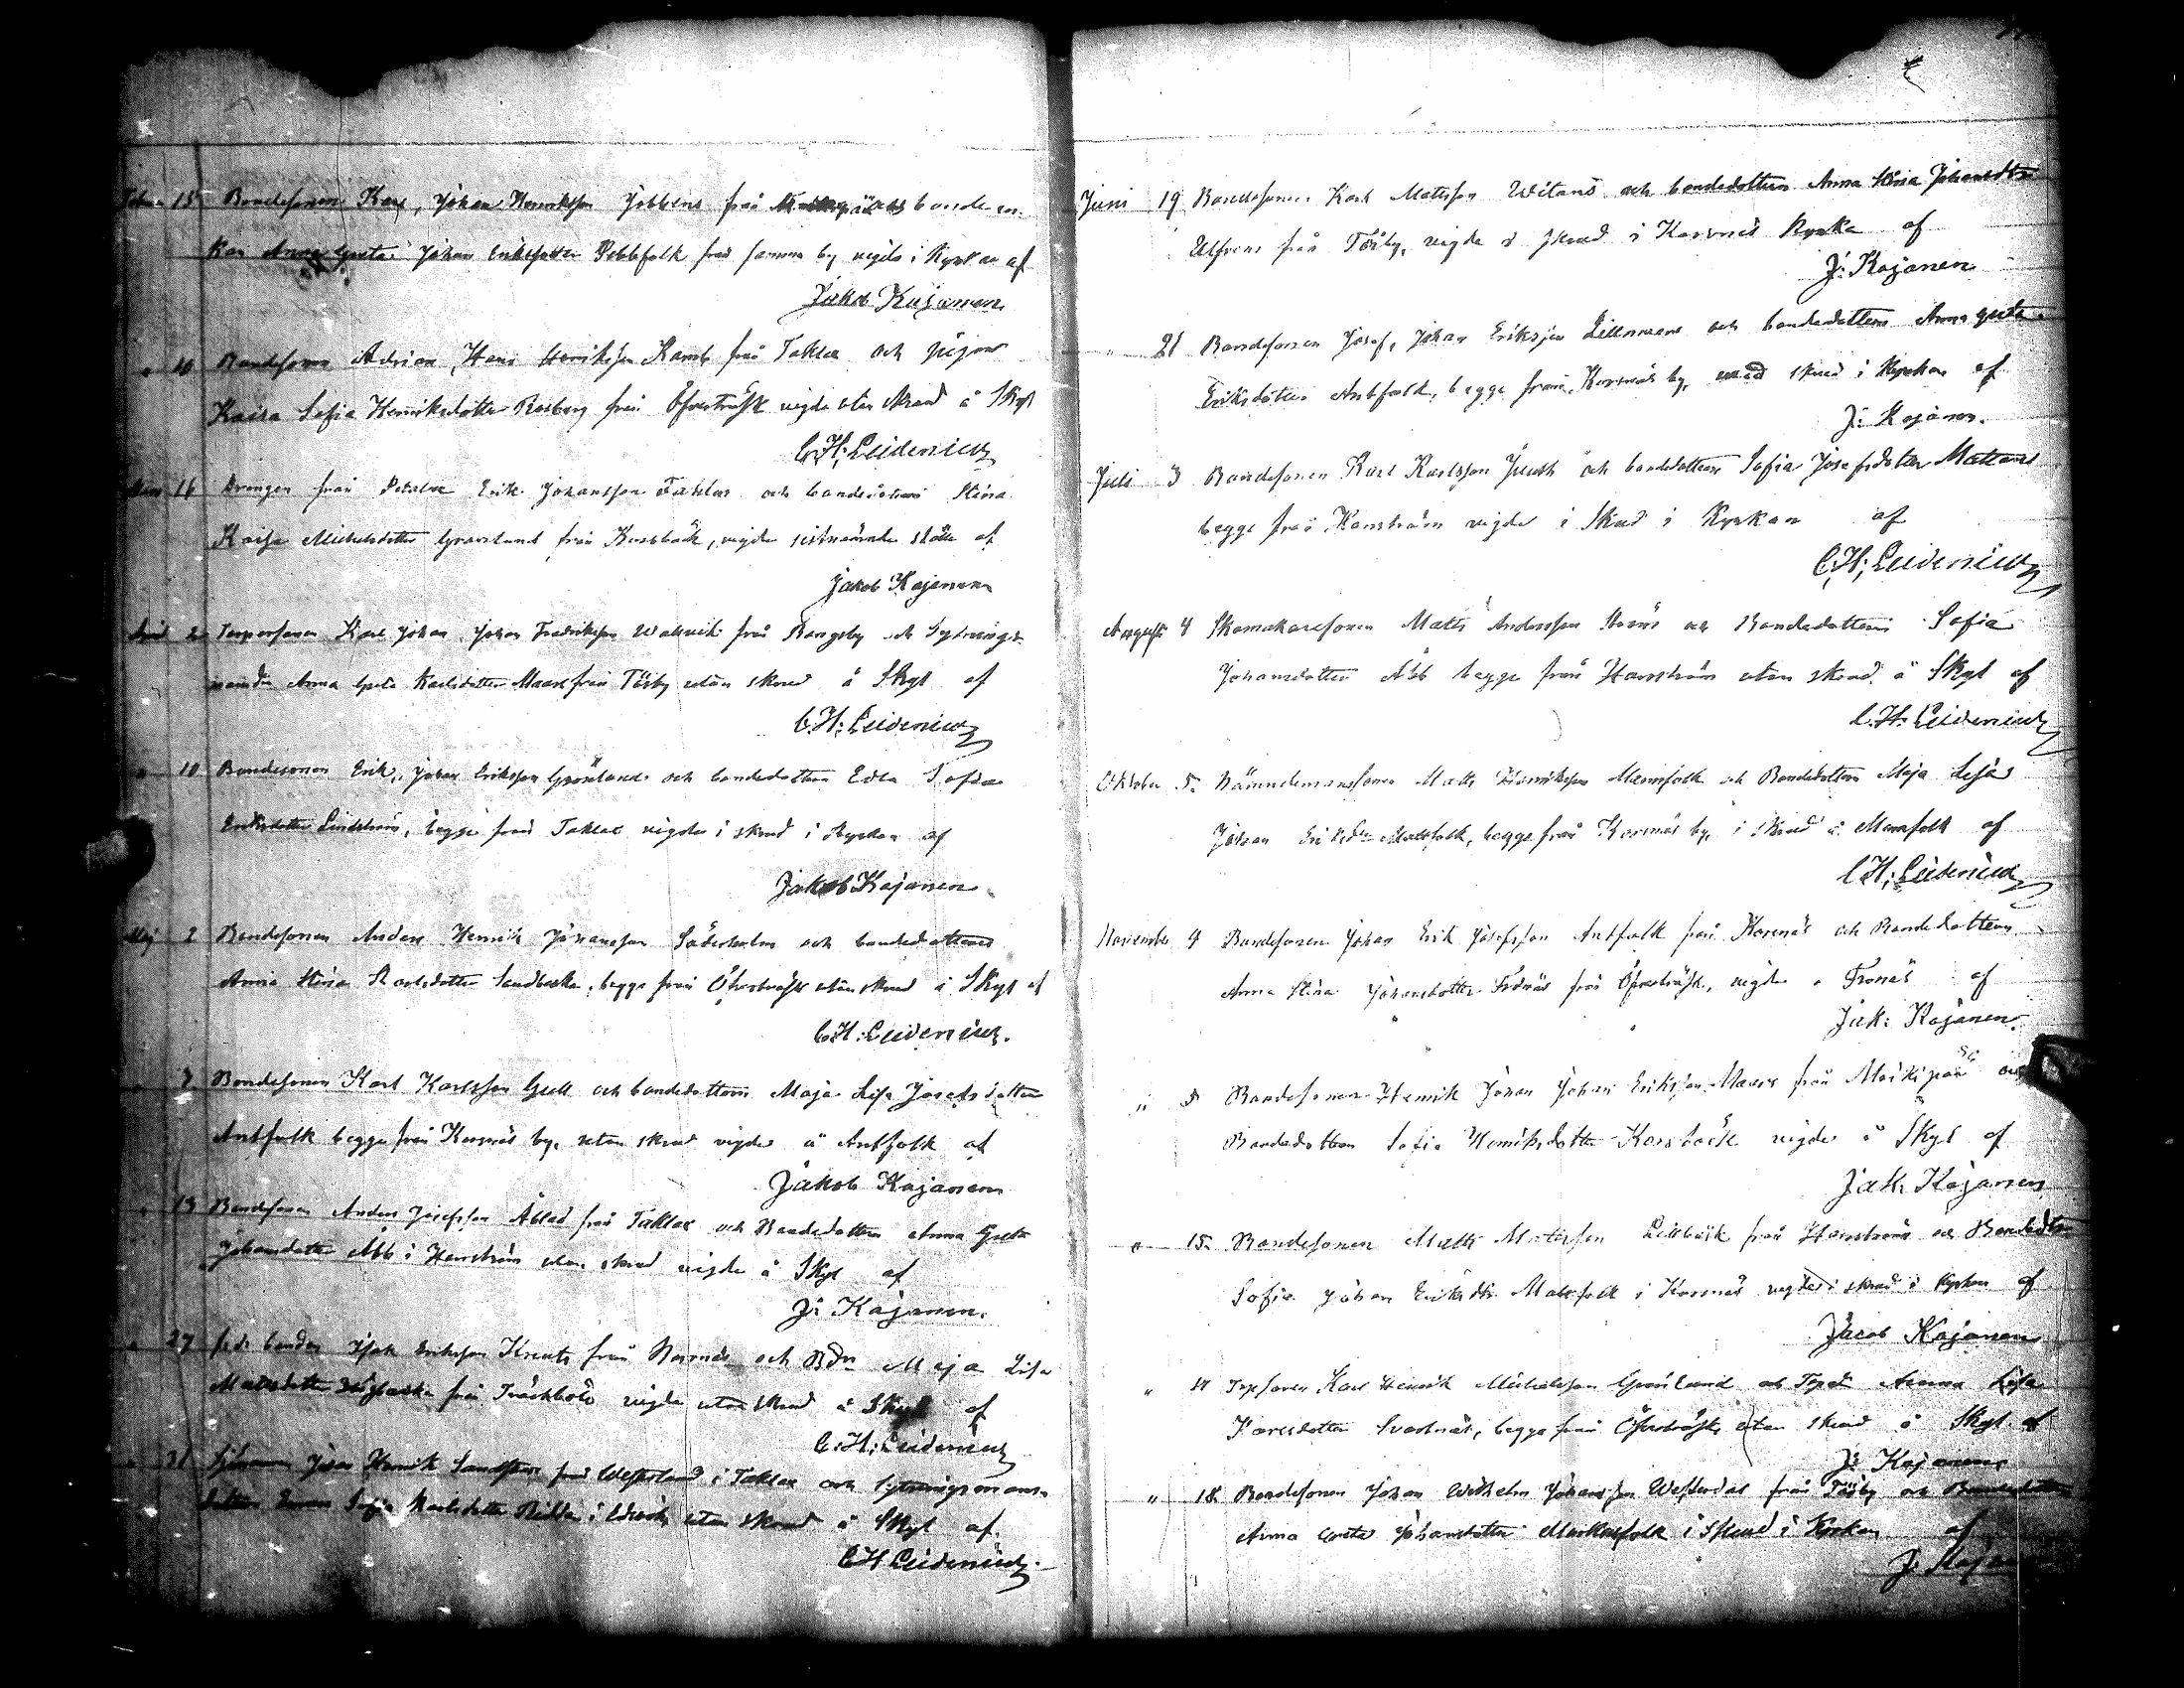 15 Bondesonen Karl, Johan Henriksson Jobbens från bonde en-
kan Anna Greta Johan Eriksdotter Pebbfolk från samma by vigda i Kyrkan af
Jakob Kajanen
" 10 Bondesonen Adrian, Hans Henriksson Ramb från Taklax och pigan
Kaisa Sofia Henriksdotter Rosberg från Öfverträsk vigda utan skrud å Skgl
C.H; Leidenius
16 Drengen från Petalax Erik Johansson Taklax och bondedottern Stina
Kaisa Michelsdotter Grannlund från Korsbäck, vigda sistnämnda ställe af
Jakob Kajanen
April 2 Torparsonen Karl Johan, Johan Fredriksson Wallvik från Bangsby och Sytnings-
Anna Greta Karlsdotter Maars från Töjby utan skrud å Skgl af
C.H; Leidenius
" 10 Bondesonen Erik, Johan Eriksson Grönlund och bondedottern Edla Sofia
Eriksdotter Lindström, begge från Taklax vigda i skrud i Kyrkan af
Jakob Kajanen
Maj 2 Bondesonen Anders Henrik Johansson Söderholm och bondedottern
Anna Stina Karlsdotter Sandbacka, begge från Öfverträsk utan skrud å Skgl af
C.H; Leidenius.
7 Bondesonen Karl Karlsson Gull och bondedottern Maja Lisa Josefsdotter
Antfolk begge från Korsnäs by, utan skrud vigda å Antfolk af
Jakob Kajanen
" 13 Bondesonen Anders Josefsson Åblad från Taklax och Bondedottern Anna Greta
Johansdotter Abb i Harrström utan skrud vigda å Skgl af
J: Kajanen.
" 27 f.d. bonden Isak Eriksson Kreutz från Korsnäs och Bdn Maja Lisa
Mattsdotter från Träskböle vigda utan skrud å Skgl af
C:H; Leidenius
" 31 Johan Henrik från Westerlund i Taklax och sytningsmans-
dottern Sofia Karlsdotter i utan skrud å Skgl af
C H Leidenius
Juni 19 Bondesonen Karl Mattsson Witans och bondedottern Anna Stina Johansdtr
Ulfvens från Töjby, vigda i skrud i Korsnäs Kyrka af
J: Kajanen
" 21 Bondesonen Josef, Johan Eriksson Lillmans och bondedottern Anna Greta
Eriksdotter Antfolk, begge från Korsnäs by, med skrud i Kyrkan af
J: Kajanen.
Juli 3 Bondesonen Karl Karlsson Juuth och bondedottern Sofia Josefsdotter Mattans
begge från Harrström vigda i Skrud i Kyrkan af
C.H; Leidenius
Augusti 4 Skomakaresonen Matts Andersson Storås och Bondedottern Sofia
Johansdotter Abb begge från Harrström utan skrud å Skgl af
C.H: Leidenius
Oktober 5. Nämndemanssonen Matts Henriksson Mannfolk och Bondedottern Maja Lisa
Johan Eriksdtr Mattfolk, begge från Korsnäs by, i Skrud å Mannfolk af
C.H; Leidenius
November 4 Bondesonen Johan Erik Josefsson Antfolk från Korsnäs och Bondedottern
Anna Stina Johansdotter Fronäs från Öfverträsk, vigda å Fronäs af
Jak: Kajanen.
" 5 Bondesonen Henrik Johan Johan Eriksson Maars från Moikipää och
Bondedottern Sofia Henriksdotter Korsbäck vigda å Skgl af
Jak. Kajanen
" 15. Bondesonen Matts Mattsson Lillbäck från Harrström och Bondedtr
Sofia Johan Eriksdtr Mattfolk i Korsnäs vigda i skrud i Kyrkan af
Jacob Kajanen
" 11 Torpsonen Karl Henrik Michelsson Grönlund och Tpd Anna Lisa
Karlsdotter Svartnäs, begge från Öfverträsk, utan skrud å Skgl af
J: Kajanen
" 18. Bondesonen Johan Wilhelm Johansson Westerdal från Töjby och Bondedottern
Anna Greta Johansdotter i Skrud i Kyrkan af
J: Kajanen